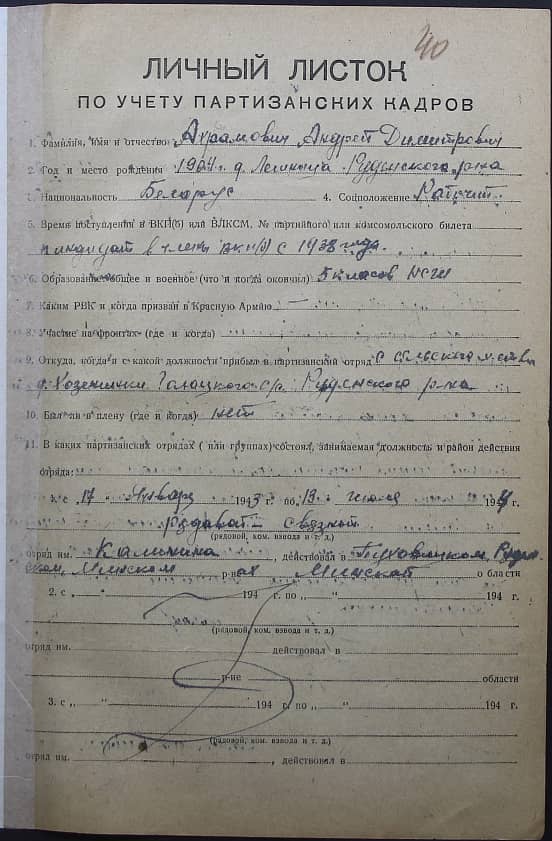 40
ЛИЧНЫЙ ЛИСТОК
ПО УЧЕТУ ПАРТИЗАНСКИХ КАДРОВ
1. Фамилия, имя и отчество Ахрамович Андрей Димитрович
2. Год и место рождения 1904 г. д. Руденского р-на
3. Национальность Беларус 4. Соцположение
5. Время поступления в ВКП(б) или ВЛКСМ, № партийного или комсомольского билета
кандидат в члены ВКП(б) с 1938 года.
6. Образование общее и военное (что и когда окончил) 5 класов НСШ
7. Каким РВК и когда призван в Красную Армию —
8. Участие на фронтах (где и когда)
9. Откуда, когда и с какой должности прибыл в партизанский отряд с сельского
д. Хозенинки Голоцкого с/с. Руденского р-на
10. Был ли в плену (где и когда) нет
11. В каких партизанских отрядах ( или группах) состоял, занимаемая должность и район действия
отряда:
1. с 17 Январ 1943 г. по 13 июля 1944 г.
рядовой связной
(рядовой, ком. взвода и т. д.)
отряд им. Калинина, действовал в Пуховицком, Руден-
ском, Минском р-нах Минской области
2. с „ “ 194 г. по „ “ 194 г.
(рядовой, ком. взвода и т. д.)
отряд им. действовал в
р-не области
3. с „ “ 194 г. по „ “ 194 г.
(рядовой, ком. взвода и т. д.)
отряд им. , действовал в